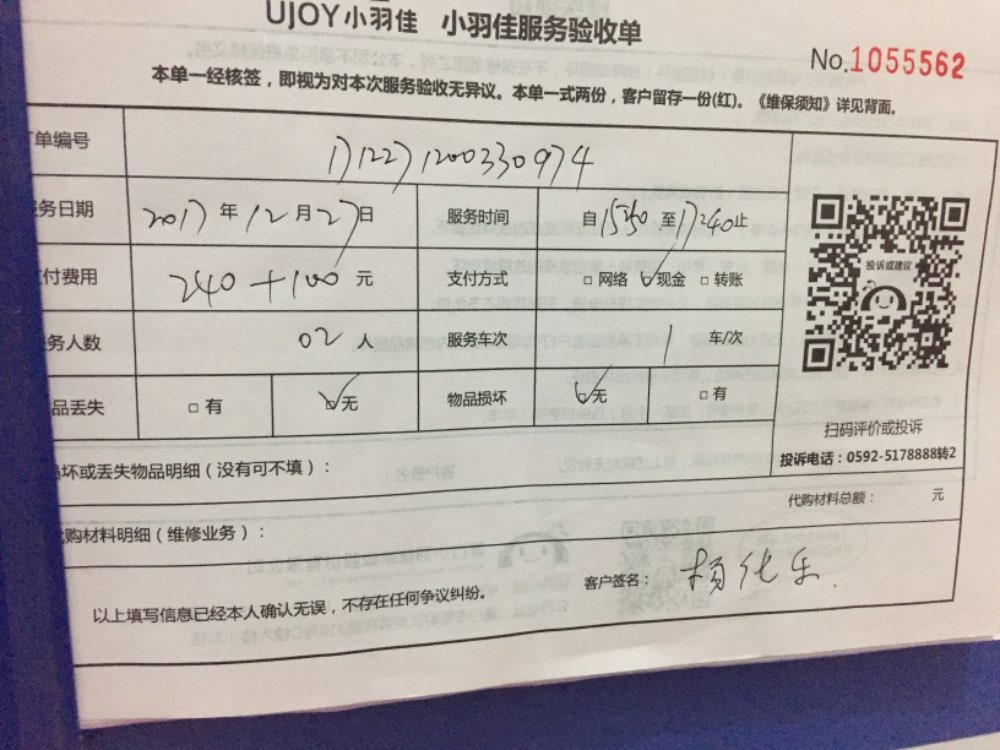 UJOY小羽佳 小羽佳服务验收单
No.1055562
本单一经核签，即视为对本次服务验收无异议。本单一式两份，客户留存一份(红)。《维保须知》详见背面。
单编号 1712271200330974
务日期 2017年12月27日 服务时间 自15:40至17:40止
付费用 240+100元 支付方式 □网络 ☑现金 □转账
务人数 02人 服务车次 1车/次
品丢失 □有 ☑无 物品损坏 ☑无 □有
投诉或建议
扫码评价或投诉
投诉电话：0592-5178888转2
坏或丢失物品明细（没有可不填）：
代购材料总额： 元
购材料明细（维修业务）：
以上填写信息已经本人确认无误，不存在任何争议纠纷。
客户签名：